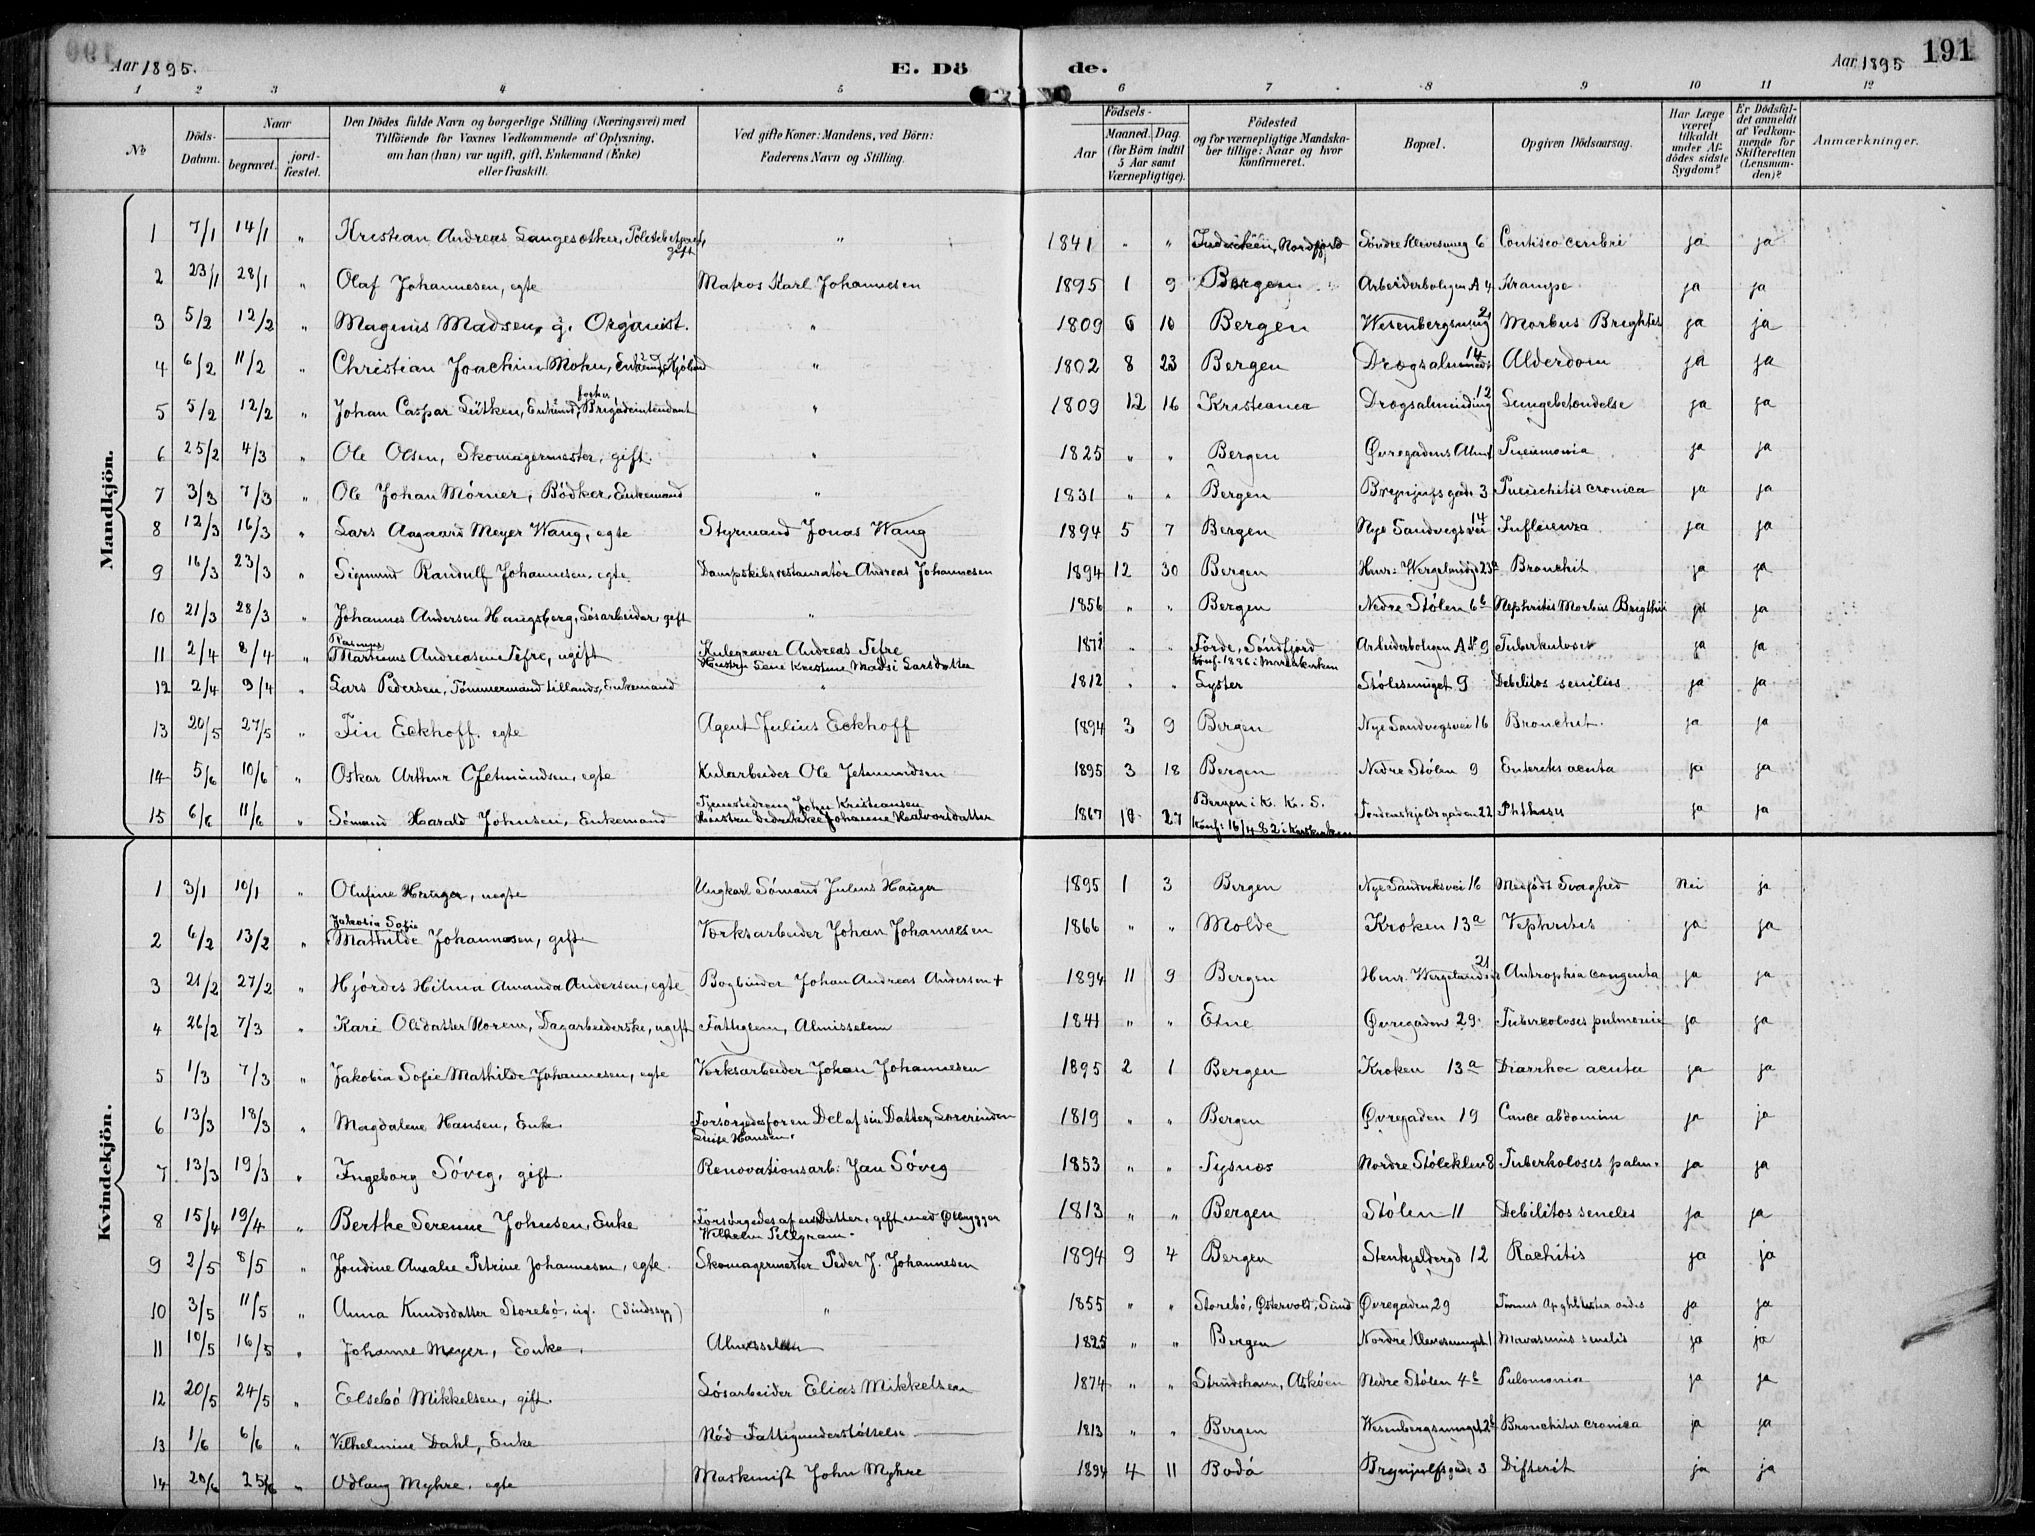 191
Aar 1895.
E. Dö de.
Aar 1895
1 2 3 4 5 6 7 8 9 10 11 12
№
Döds-Datum.
Naar
begravet.
jord-fæstet.
Den Dödes fulde Navn og borgerlige Stilling (Næringsvei) med
Tilföiende for Voxnes Vedkommende af Oplysning,
om han (hun) var ugift, gift, Enkemand (Enke)
eller fraskilt.
Ved gifte Koner: Mandens, ved Börn:
Faderens Navn og Stilling.
Födsels-
Aar
Maaned. Dag.
(for Börn indtil
5 Aar samt
Værnepligtige).
Födested
og for værnepligtige Mandska-
ber tillige: Naar og hvor
konfirmeret.
Bopæl.
Opgiven Dödsaarsag.
Har Læge
været
tilkaldt
under Af-
dödes sidste
Sygdom?
Er Dödsfal-
det anmeldt
af Vedkom-
mende for
Skifteretten
(Lensman-
den)?
Anmærkninger.
Mandkjön.
1 7/1 14/1 " Kristian Andreas Langesæther, Politibetjent, gift " 1841 " " Indviken, Nordfjord Söndre Klevesmug 6 ja ja
2 23/1 28/1 " Olaf Johannesen, egte Matros Karl Johannesen 1895 1 9 Bergen Arbeiderboligen A 4 Krampe ja ja
3 5/2 12/2 " Magnus Madsen, g. Organist. " 1809 6 10 Bergen Wesenbergsmug 21 Morbus Brightes ja ja
4 6/2 11/2 " Christian Joachim Mohn, Enkemd, Kjöbmd " 1802 8 23 Bergen Drægsalmend: 14 Alderdom ja ja
5 5/2 12/2 " Johan Caspar Lütken, Enkemd, forhv. Brigadeintendant " 1809 12 16 Kristiania Drægsalmending 12 Lungebetændelse ja ja
6 25/2 4/3 " Ole Olsen, Skomagermester, gift. " 1825 " " Bergen Øvregadens Alm 1 Pneumonia ja ja
7 3/3 7/3 " Ole Johan Mörner, Bödker, Enkemand " 1831 " " Bergen Brynjulfsgade 3 cronica ja ja
8 12/3 16/3 " Lars Aagaard Meyer Wang, egte Styrmand Jonas Wang 1894 5 7 Bergen Nye Sandvegsvei 14 Influenza ja ja
9 16/3 23/3 " Sigmund Randulf Johannesen, egte. Dampskibsrestauratör Andreas Johannesen 1894 12 30 Bergen Henr: Wergelandsg 23a Bronchit ja ja
10 21/3 28/3 " Johannes Andersen Haugsberg, Lösarbeider, gift " 1856 " " Bergen Nedre Stölen 6b Nephritis Morbus Brigthii ja ja
11 2/4 8/4 " Rasmus Martinus Andreasen Tefre, ugift Kulegraver Andreas Tefre Hustru Lene Kristine Madsi Larsdatter 1871 " " Förde, Söndfjord Konf. 1886 i Mariakirken Arbeiderboligen A 9 Tuberkuloses ja ja
12 2/4 9/4 " Lars Pedersen, Tömmermand tillands, Enkemand " 1812 " " Lyster Stölesmuget 9 Debilitos senilis ja ja
13 20/5 27/5 " Fin Eckhoff. egte Agent Julius Eckhoff 1894 3 9 Bergen Nye Sandvegsvei 16 Bronchit. ja ja
14 5/6 10/6 " Oskar Arthur Gjetmundsen, egte Kularbeider Ole Jetmundsen 1895 3 18 Bergen Nedre Stölen 9 Enterits acuta ja ja
15 6/6 11/6 " Sömand Harald Johnsen, Enkemand Tjenestedreng John Kristiansen Hustru Dedrikke Johanne Halvorsdatter 1867 10 27 Bergen i K. K. S. Konf: 16/4 82 i Korskirken Tordenskjoldsgaden 22 Phthisis ja ja
Kvindekjön.
1 3/1 10/1 " Olufine Hauger, uegte Ungkarl Sömand Julius Hauger 1895 1 3 Bergen Nye Sandviksvei 16 Medfödt Svaghed Nei ja
2 6/2 13/2 " Jakobia Sofie Mathilde Johannesen, gift Værksarbeider Johan Johannesen 1866 " " Molde Kroken 13a Nephrites ja ja
3 21/2 27/2 " Hjördis Hilma Amanda Andersen, egte Bogbinder Johan Andreas Andersen + 1894 11 9 Bergen Henr. Wergelandsg 21 Antrophia congenta ja ja
4 26/2 7/3 " Kari Olsdatter Norem, Dagarbeiderske, ugift Fattiglem, Almisselem 1841 " " Etne Øvregaden 29. Tuberculoses pulmonis ja ja
5 1/3 7/3 " Jakobia Sofie Mathilde Johannesen, egte Værksarbeider Johan Johannesen 1895 2 1 Bergen Kroken 13a Diarrhoe acuta ja ja
6 13/3 18/3 " Magdalene Hansen, Enke Forsörgedes for en Del af sin Datter, Lærerinden Luise Hansen. 1819 " " Bergen Øvregaden 19 Cance abdomini ja ja
7 13/3 19/3 " Ingeborg Söveg, gift. Renovationsarb: Jan Söveg 1853 " " Tysnæs Nordre Stölekleu 8 Tuberkoloses palm. ja ja
8 15/4 19/4 " Berthe Serenne Johnsen, Enke Forsörgedes af en Datter, gift med Ölbrygger Wilhelm Pellgram. 1813 " " Bergen Stölen 11 Debilitos seneles ja ja
9 2/5 8/5 " Jondine Amalie Petrine Johannesen, egte. Skomagermester Peder J. Johannesen 1894 9 4 Bergen Stenkjeldergd 12 Rachitis ja ja
10 3/5 11/5 " Anna Knudsdatter Storebö, ug. (Sindssyg) " 1855 " " Storebö, Østervold, Sund Øvregaden 29 ja ja
11 10/5 16/5 " Johanne Meyer, Enke. Almisselem 1825 " " Bergen Nordre Klevesmuget 1 Marasmus senilis ja ja
12 20/5 24/5 " Elsebö Mikkelsen, gift. Lösarbeider Elias Mikkelsen 1874 " " Strudshavn, Askøen Nedre Stölen 4b Pulomonia ja ja
13 1/6 6/6 " Vilhelmine Dahl, Enke Nöd Fattigunderstöttelse 1813 " " Bergen Wesenbergsmuget 2b Bronchites cronica ja ja
14 20/6 25/6 " Odlaug Myhre. egte Maskinist John Myhre 1894 4 11 Bodö Brynjulfsgade 3 Difterit ja ja